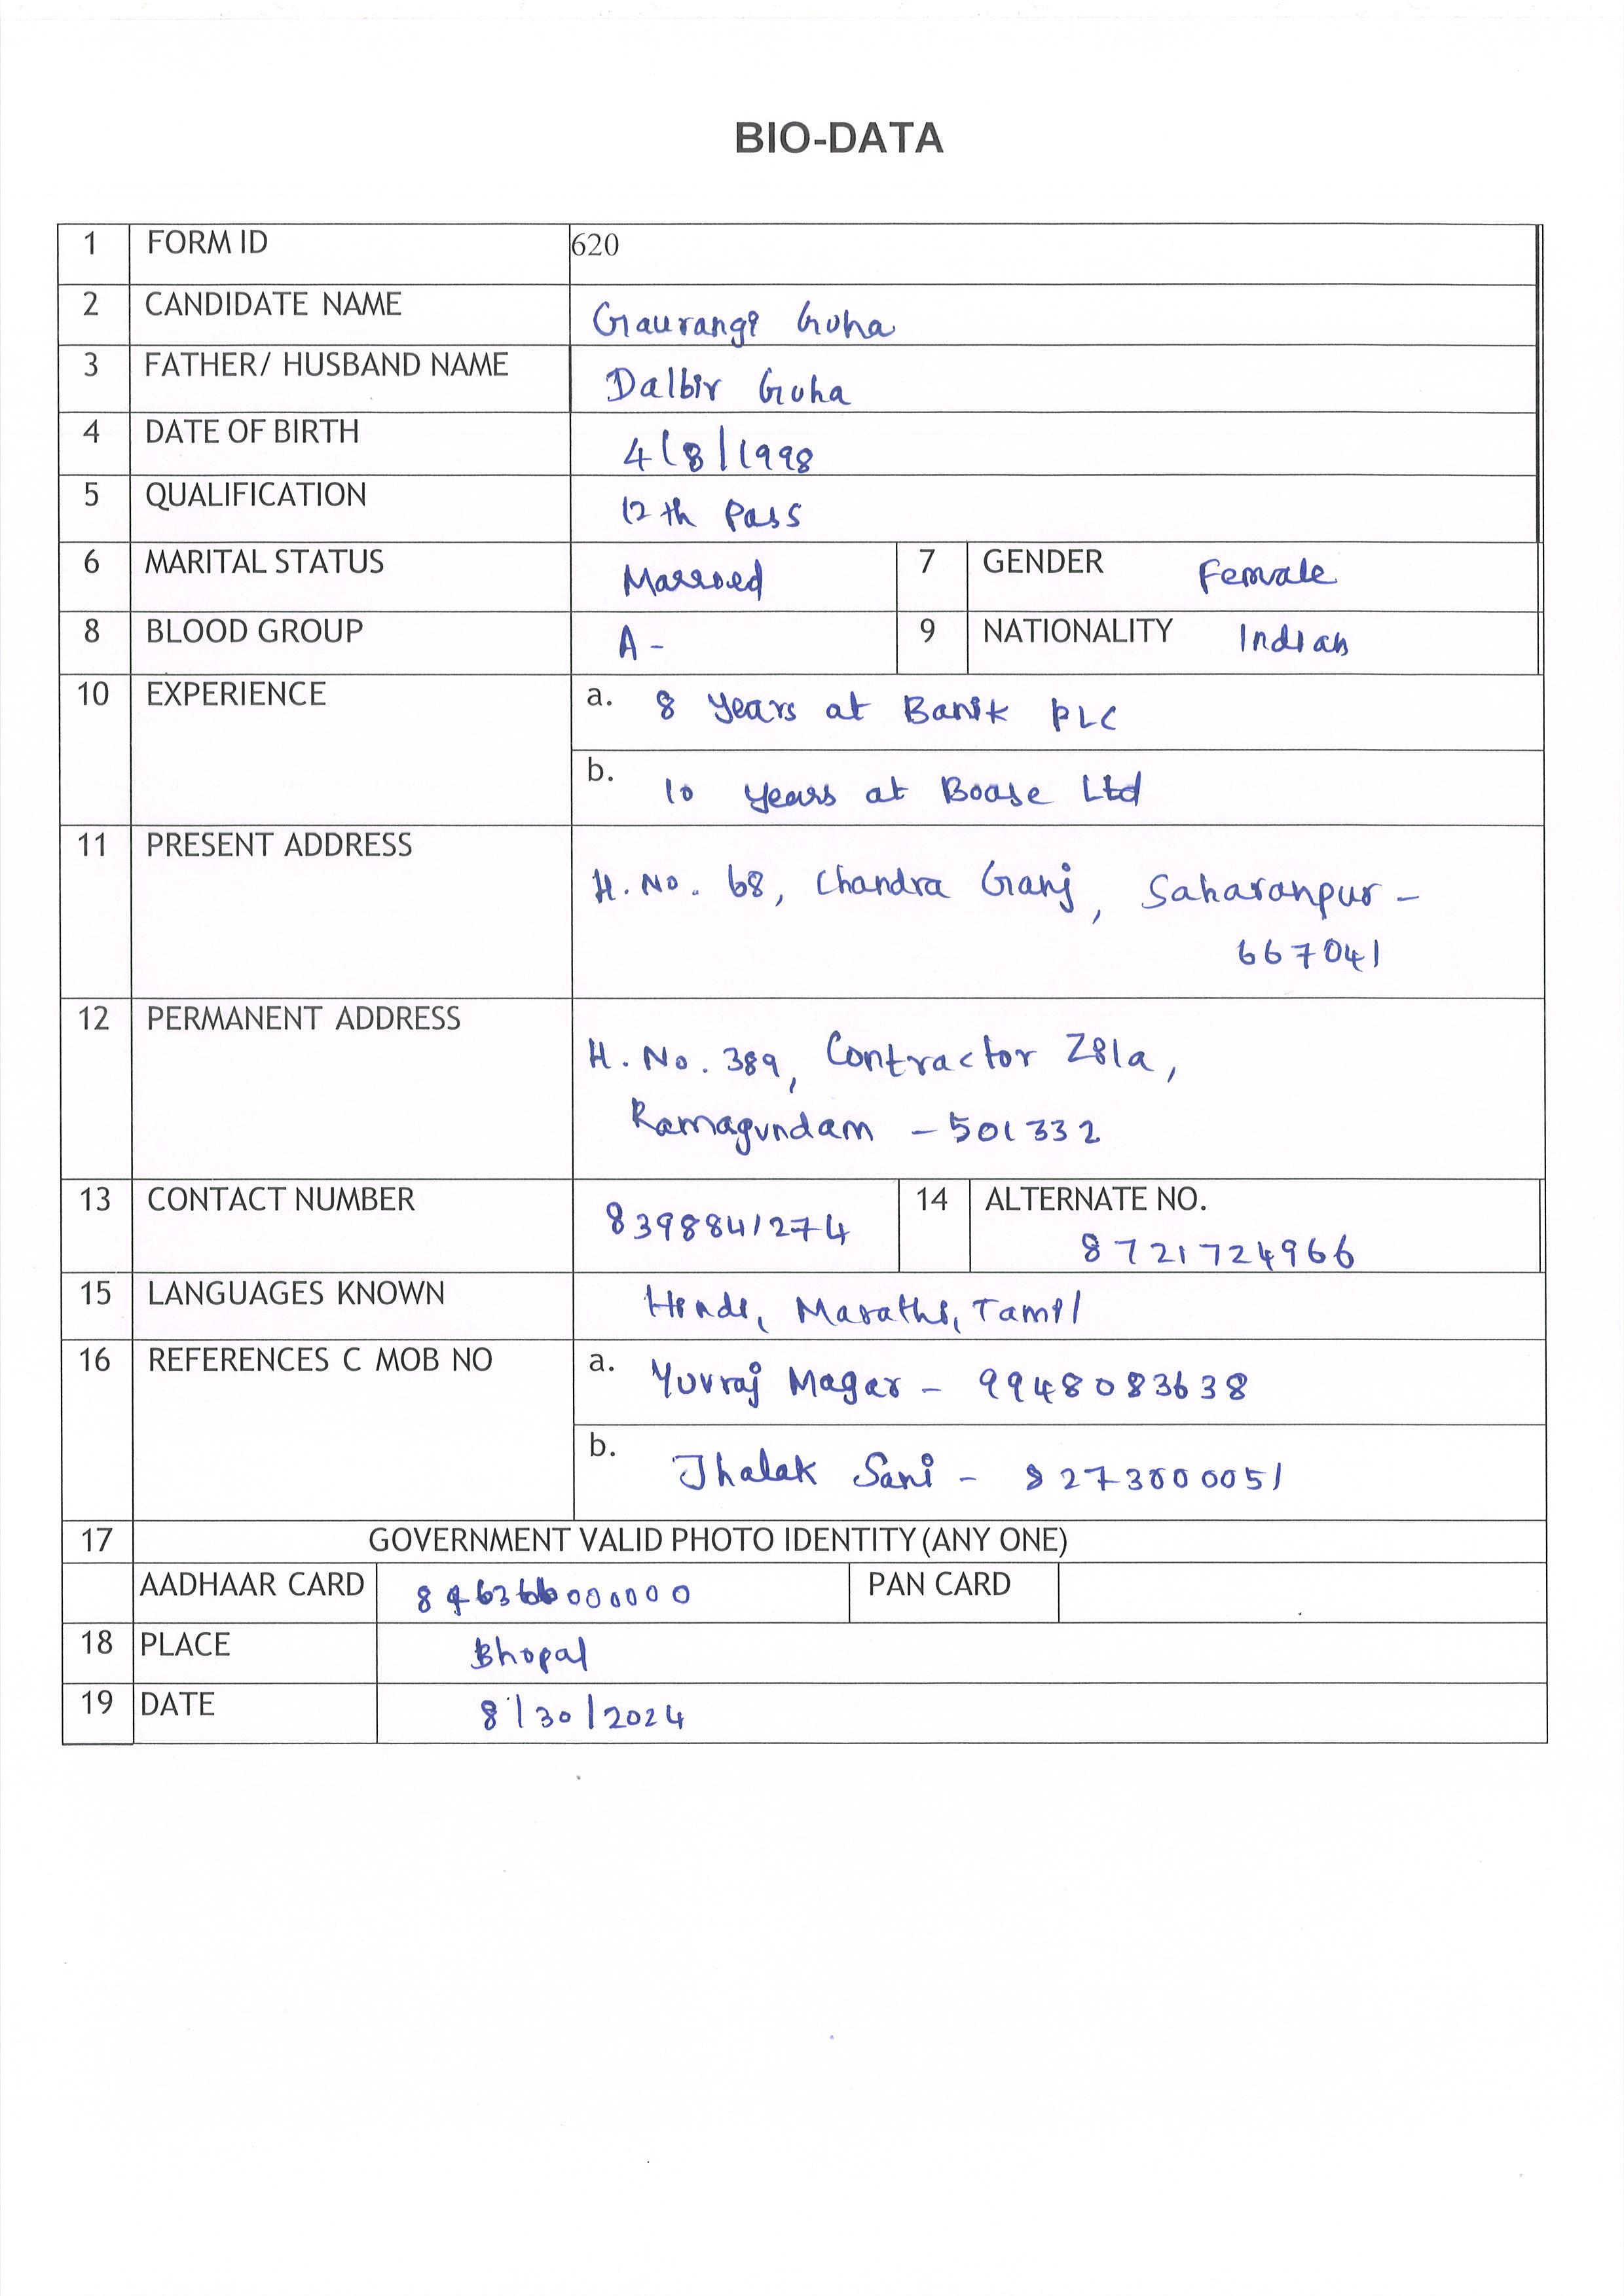 BIO-DATA
1 FORM ID 620
2 CANDIDATE NAME Gaurangi Guha
3 FATHER/ HUSBAND NAME Dalbir Guha
4 DATE OF BIRTH 4/8/1998
5 QUALIFICATION 12th Pass
6 MARITAL STATUS Married 7 GENDER Female
8 BLOOD GROUP A- 9 NATIONALITY Indian
10 EXPERIENCE a. 8 Years at Banik PLC
b. 10 years at Boase Ltd
11 PRESENT ADDRESS
H. No. 68, Chandra Ganj, Saharanpur -
667041
12 PERMANENT ADDRESS
H. No. 389, Contractor Zila,
Ramagundam - 501332
13 CONTACT NUMBER 8398841274 14 ALTERNATE NO.
8721724966
15 LANGUAGES KNOWN Hindi, Marathi, Tamil
16 REFERENCES C MOB NO a. Yuvraj Magar - 9948083638
b. Jhalak Sani - 8273000051
17 GOVERNMENT VALID PHOTO IDENTITY (ANY ONE)
AADHAAR CARD PAN CARD
18 PLACE Bhopal
19 DATE 8/30/2024